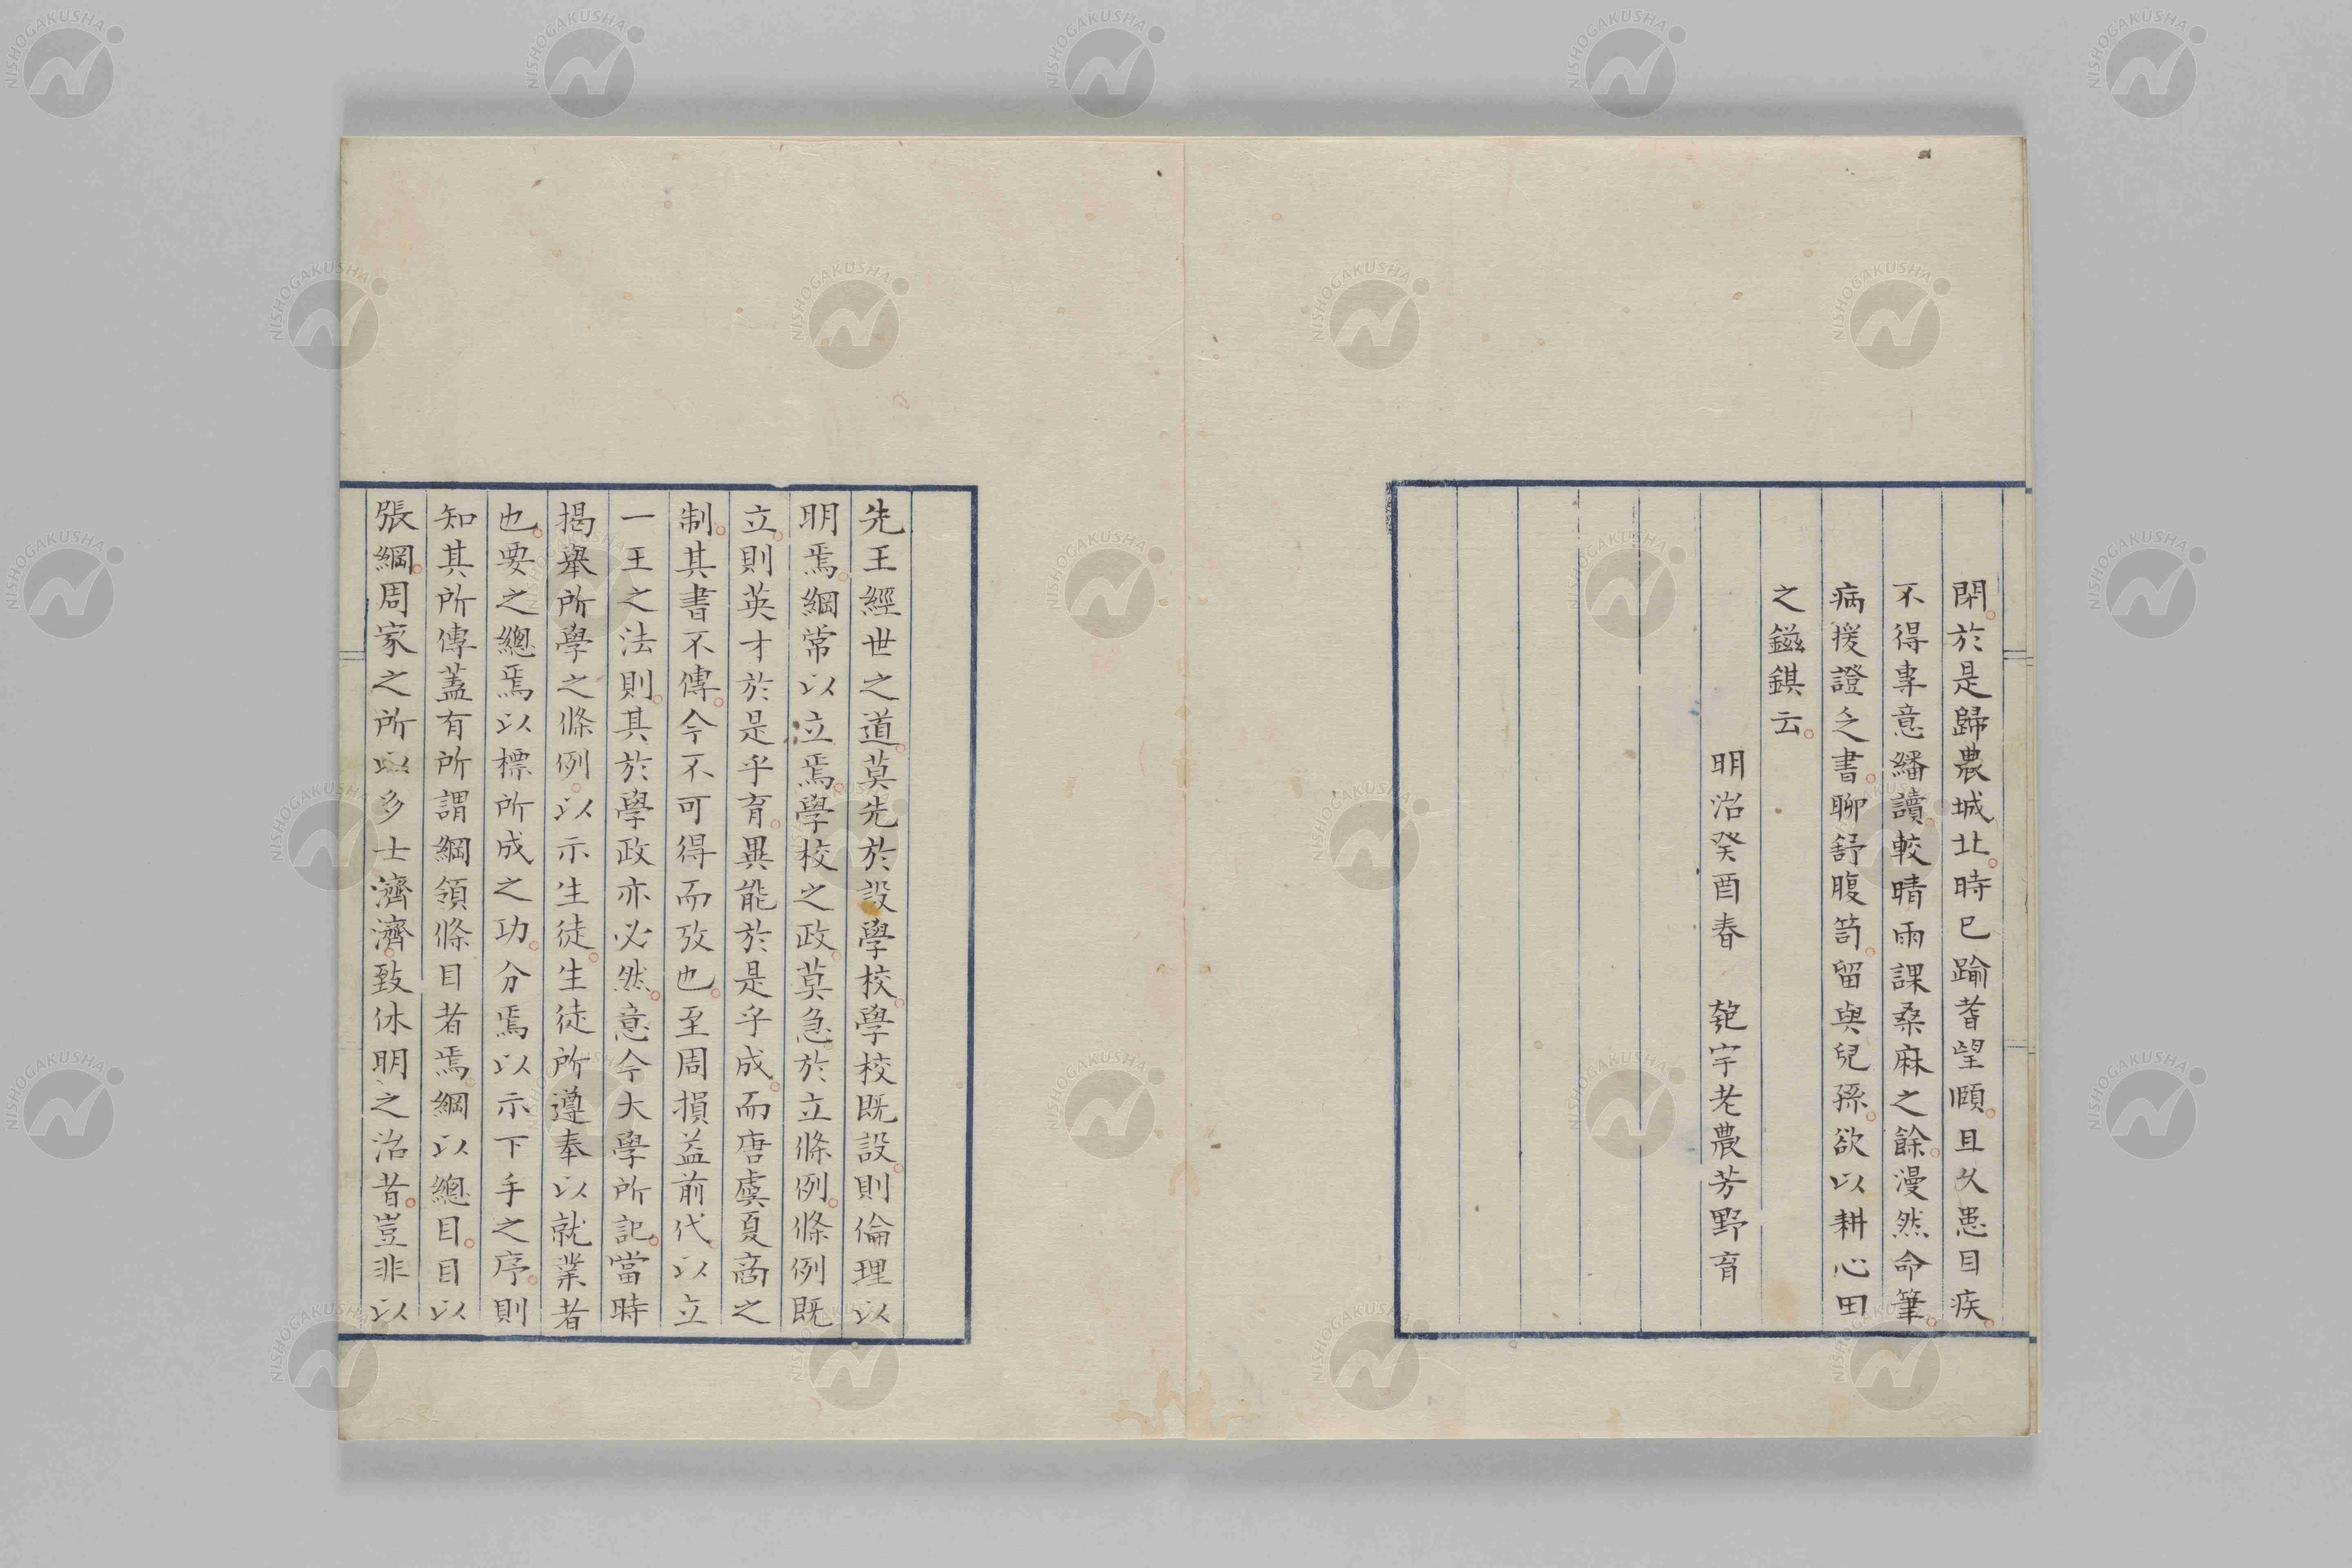 閑。於是歸農城北。時已踰耆望頤。且久患目疾。
不得專意繙讀。較晴雨課桑麻之餘。漫然命筆。
病援證之書。聊舒腹笥。留與兒孫。欲以耕心田
之鎡錤云。
明治癸酉春 匏宇老農芳野育
先王經世之道。莫先於設學校。學校既設。則倫理以
明焉。綱常以立焉。學校之政。莫急於立條例。條例既
立。則英才於是乎育。異能於是乎成。而唐虞夏商之
制。其書不傳。今不可得而攷也。至周損益前代。以立
一王之法則。其於學政亦必然。意今大學所記。當時
揭舉所學之條例。以示生徒。生徒所遵奉以就業者
也。要之總焉以標所成之功。分焉以示下手之序。則
知其所傳蓋有所謂綱領條目者焉。綱以總目。目以
張綱。周家之所以多士濟濟。致休明之治者。豈非以